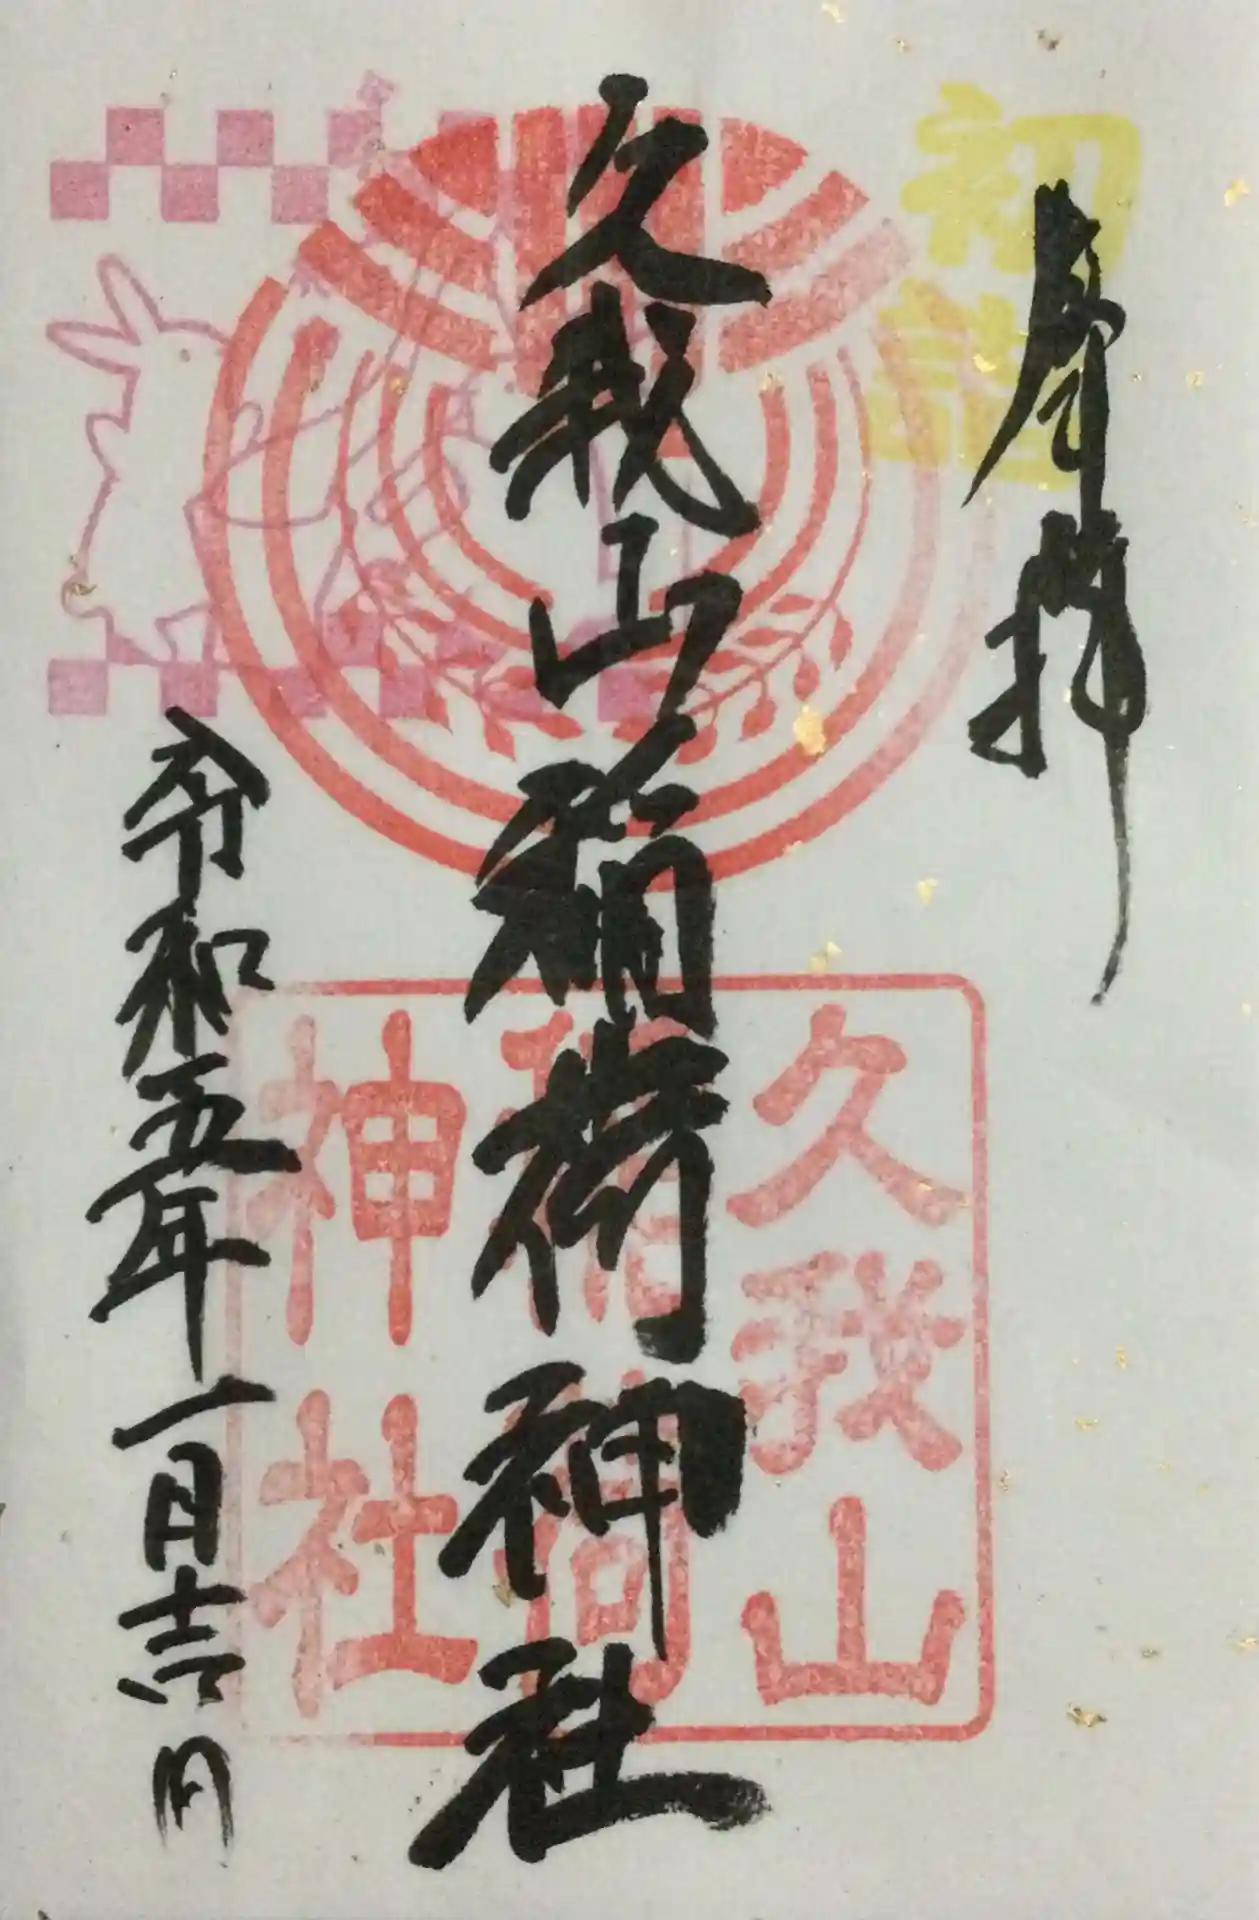 初詣
奉拝
久我山稲荷神社
久我山
稲荷
神社
令和五年一月吉日